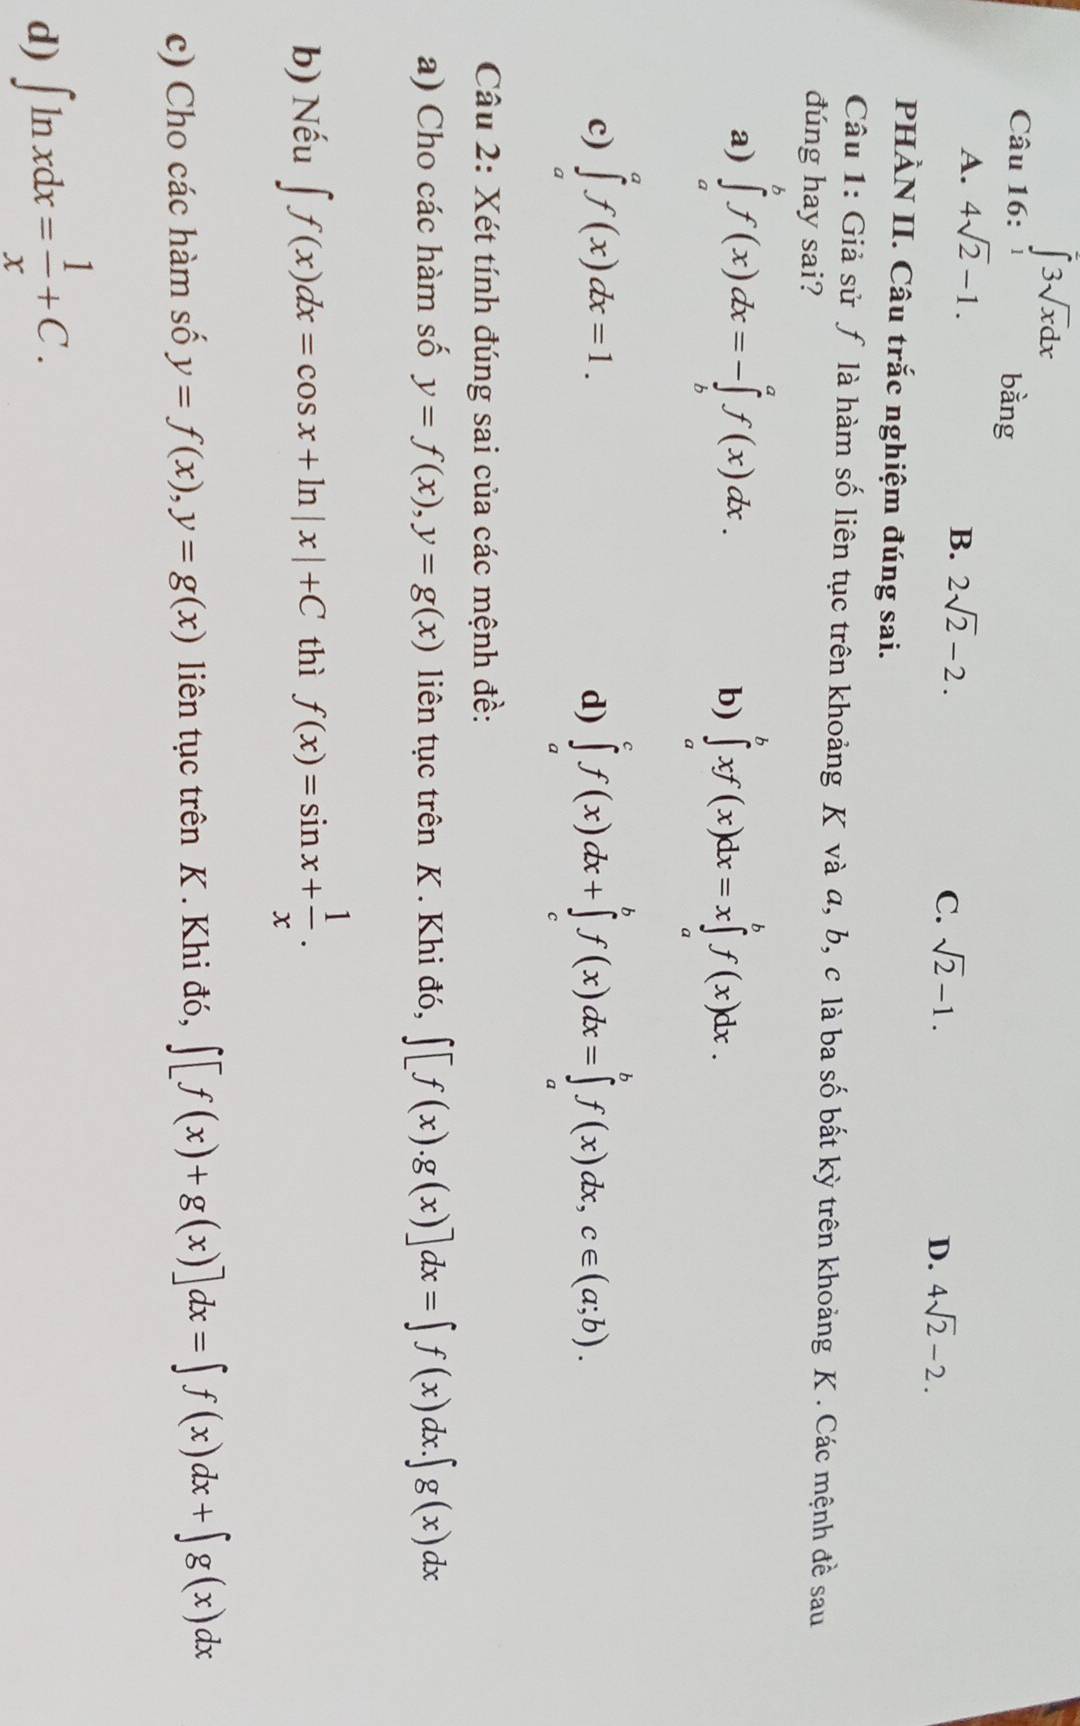 Câu 16: $\int_{1}^{2} 3\sqrt{x}dx$ bằng
A. $4\sqrt{2}-1$. B. $2\sqrt{2}-2$. C. $\sqrt{2}-1$. D. $4\sqrt{2}-2$.
PHẦN II. Câu trắc nghiệm đúng sai.
Câu 1: Giả sử $f$ là hàm số liên tục trên khoảng $K$ và $a, b, c$ là ba số bất kỳ trên khoảng $K$. Các mệnh đề sau
đúng hay sai?
a) $\int_{a}^{b} f(x)dx = -\int_{b}^{a} f(x)dx$. b) $\int_{a}^{b} xf(x)dx = x\int_{a}^{b} f(x)dx$.
c) $\int_{a}^{a} f(x)dx = 1$. d) $\int_{a}^{c} f(x)dx + \int_{c}^{b} f(x)dx = \int_{a}^{b} f(x)dx, c \in (a;b)$.
Câu 2: Xét tính đúng sai của các mệnh đề:
a) Cho các hàm số $y = f(x), y = g(x)$ liên tục trên $K$. Khi đó, $\int [f(x).g(x)]dx = \int f(x)dx.\int g(x)dx$
b) Nếu $\int f(x)dx = \cos x + \ln|x| + C$ thì $f(x) = \sin x + \frac{1}{x}$.
c) Cho các hàm số $y = f(x), y = g(x)$ liên tục trên $K$. Khi đó, $\int [f(x)+g(x)]dx = \int f(x)dx + \int g(x)dx$
d) $\int \ln xdx = \frac{1}{x} + C$.